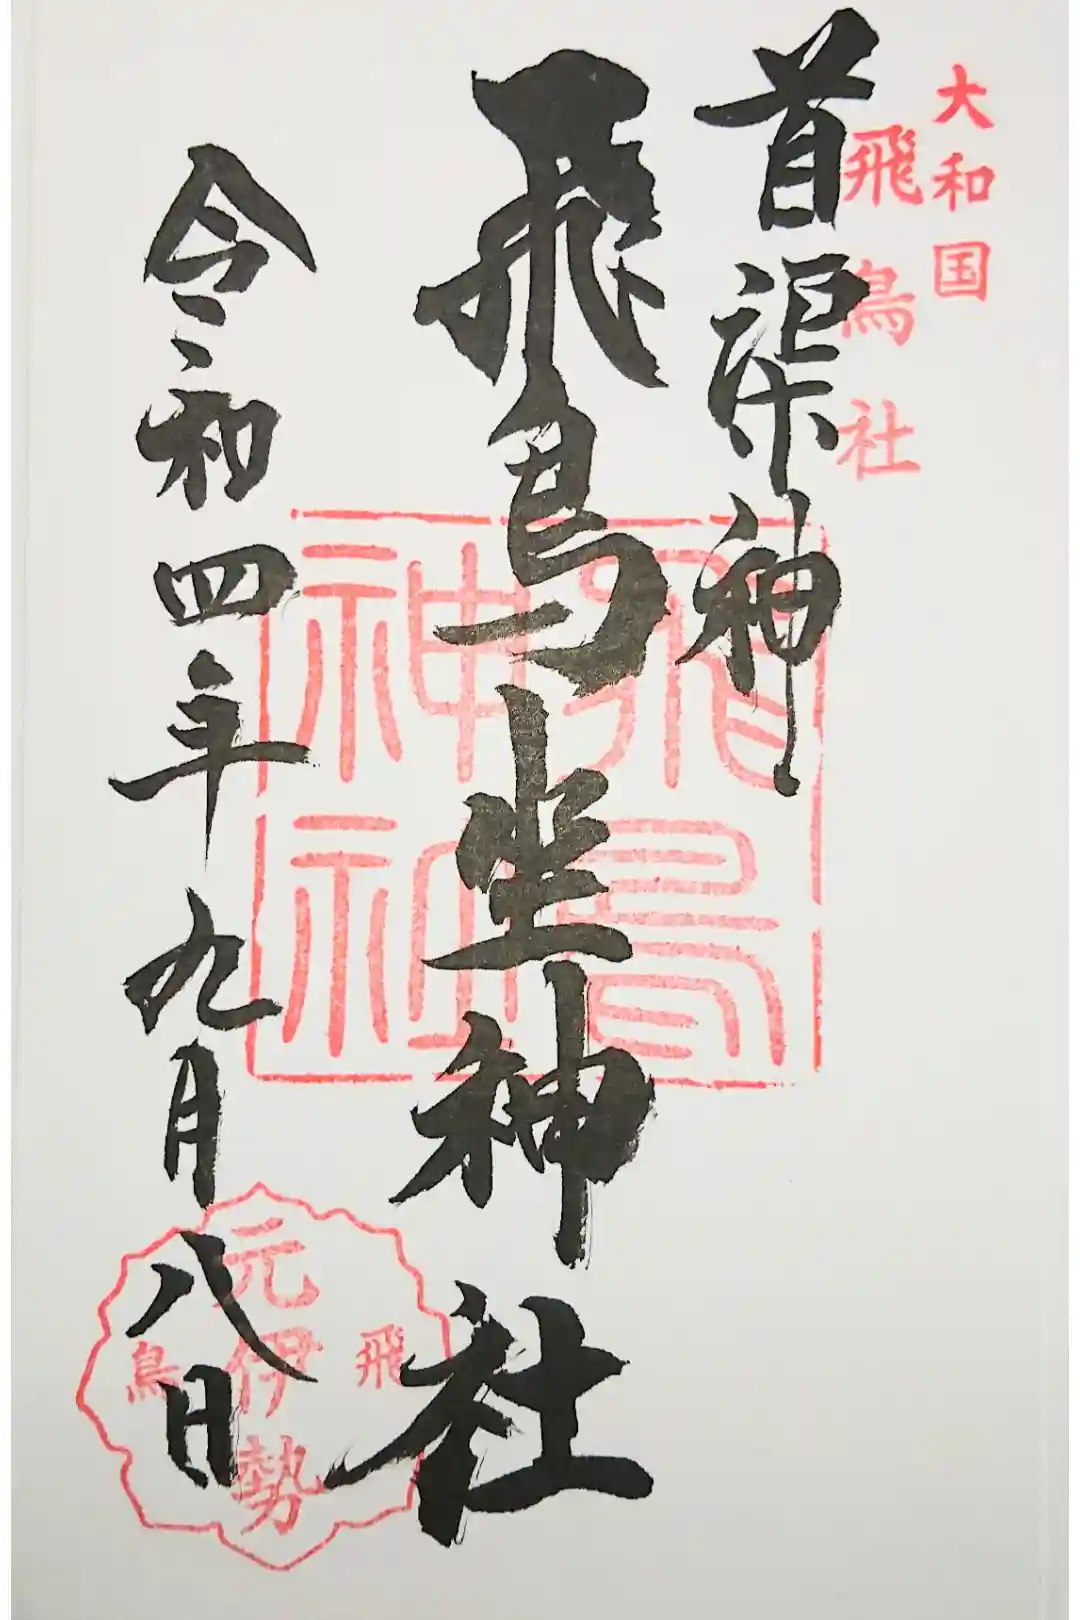 大和国
飛鳥社
首渠神
飛鳥坐神社
飛鳥
神社
令和四年九月八日
元伊勢
飛鳥